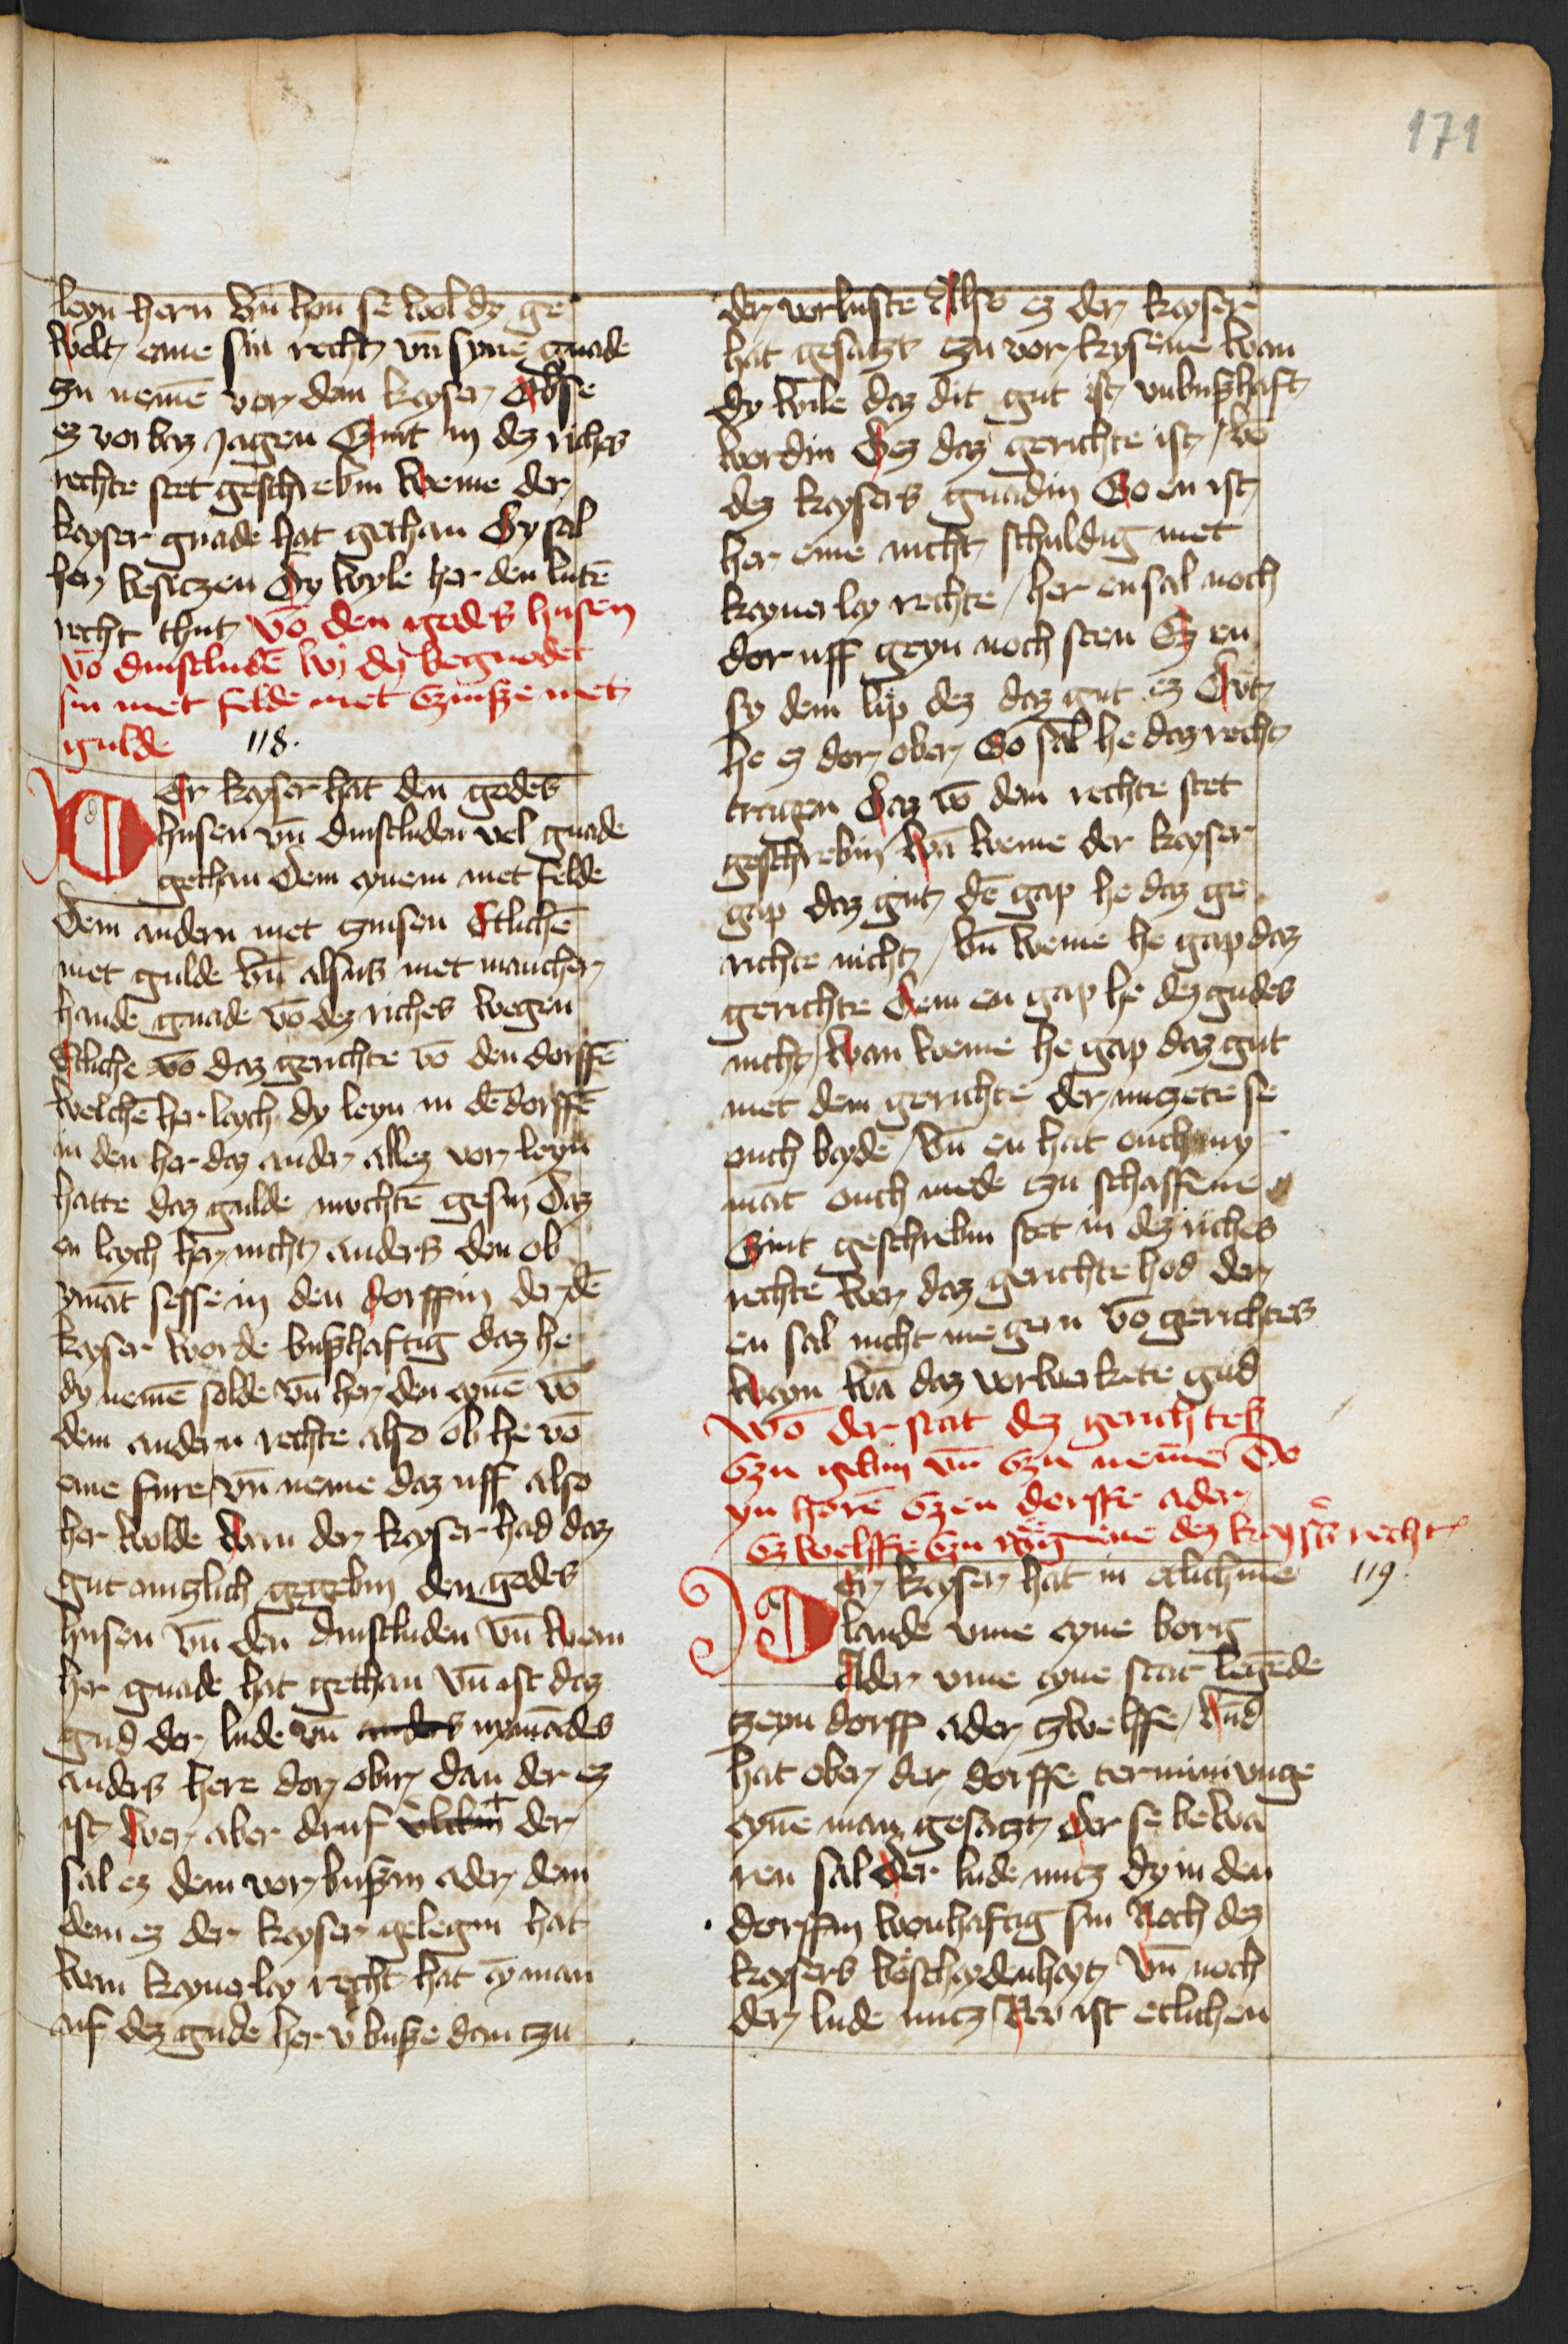 171
leyn hern vn̄ hon se wol dy ge
welt eme sin recht vn̄ synē gnade
zu nemē vor dem keyser Abse
ez vor baz jagen Sint in dez riches
rechte stet geschrebin weme der
keyser gnade hat gethan Dy sal
her besiczen Dy wyle her den lutē
recht thut vō den godes husen
vō dinstludē wy dy begnodet
sin met felde met czinsze met
gulde 118.
DEr keyser hat den godes
husen vn̄ dinstluden vel gnade
gethan Dem eynem met felde
Dem andern met zinsen Etlichē
met gulde vn̄ alsus met mancher
hande gnade vō dez riches wegen
Etliche vō daz gerichte vō den dorffē
welchē her leych dy leyn in dē dorffē
in den her daz ander allez vor leyn
hatte daz gulde mochtē gesin Daz
en leych her nicht anders den ob
ymāt sesse in den dorffin der dē
keyser worde buszhaftig daz he
dy nemē solde vn̄ her den eynē vō
dem andern rechte also ob he vō
eme fure vn̄ neme daz uff also
her wolde Wan der keyser had daz
gut eniglich gegebin den godes
husen vn̄ den dinstluden vn̄ wem
her gnade hat gethan vn̄ ist daz
gud der lude vn̄ anders nymādes
anders here dor obir dan der ez
ist Wer aber druf der
sal ez dem vor buszin ader dem
dem ez der keyser gelegin hat
wan keynerley recht hat ey man
auf dez gude her v̄busze dan czu
der vorluste Also ez der keysere
hat gesatzt czu vor kysene wan
dy wile daz dit gut ist vnbuszhaft
wordin Dez daz gerichte ist / vō
dez keysers gnadin So en ist
her eme nicht schuldig met
keynerley rechte / her en sal noch
dor uff geyn noch sten Ez en
sy dem lip dez daz gut ez Tut
he ez dor ober So sal he daz recht
tragen Daz vō dem rechte stet
geschrebin Wā weme der keyser
gap daz gut dē gap he daz ge
richte nicht / vn̄ weme he gap daz
gerichte Dem en gap he dez gudes
nicht / Wan weme he gap daz gut
met dem gerichte der nuczete se
ouch beyde / vn̄ en hat ouch ny
māt ouch mede czu schaffene
Sint geschrebin stet in dez riches
rechte wer daz gerichte hod der
en sal nicht me gern vō gerichtes
weyn wā daz vorwerkete gud
Wō der stat dez gerichtes
Czu gebin vn̄ czu nemē Do
yn horē czen dorffe ader
czwelffe czu dez keysers recht
DEr keyser hat in etlichme 119.
lande vme eyne borg
Ader vme eyne stat legēde
zeyn dorff ader zwelffe / Vnd
hat ober der dorffe terminunge
eynē man gesatzt Der se bewa
ren sal Der lude nucz dy in den
dorffin wonhaftig sin Noch dez
keysers bescheydenheyt vn̄ noch
der lude nucz Nv ist etlichen